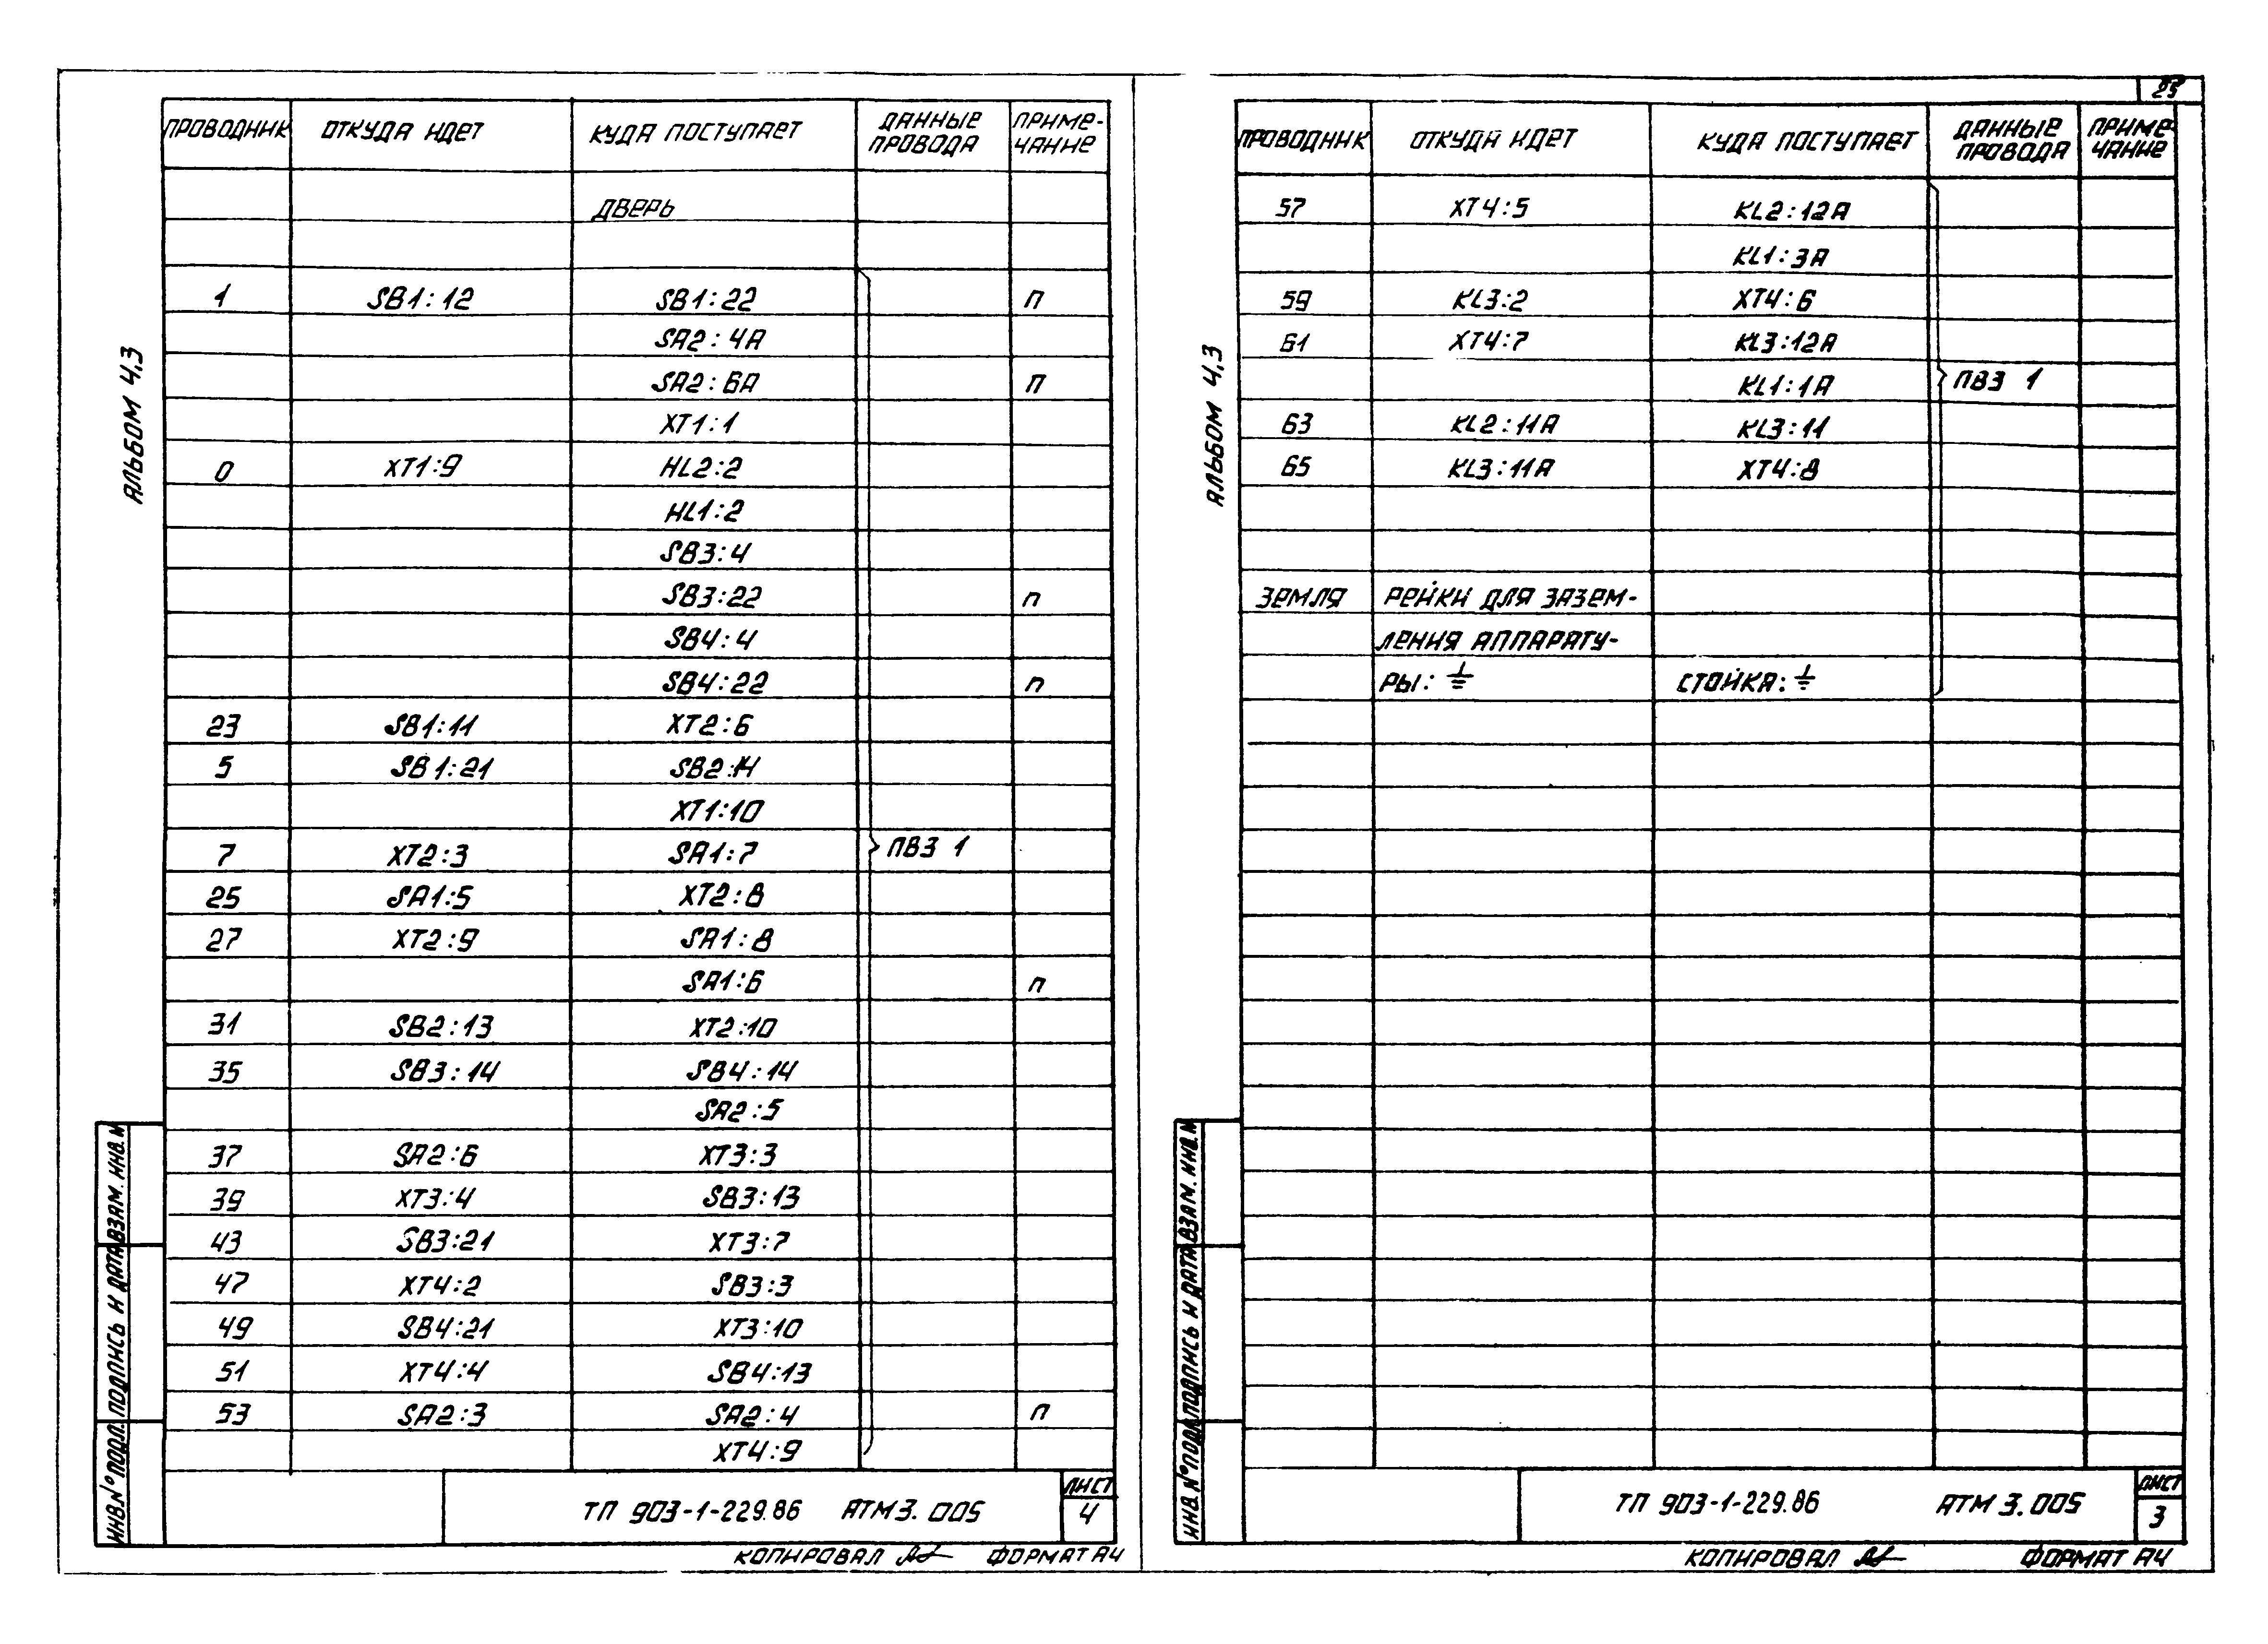 23
АЛЬБОМ 4,3
ПРОВОДНИК ОТКУДА ИДЕТ КУДА ПОСТУПАЕТ ДАННЫЕ ПРОВОДА ПРИМЕ-ЧАНИЕ
ДВЕРЬ
1 SB1:12 SB1:22 П
SA2:4А
SA2:6А П
XT1:1
0 XT1:9 HL2:2
HL1:2
SB3:4
SB3:22 П
SB4:4
SB4:22 П
23 SB1:11 XT2:6
5 SB1:21 SB2:14
XT1:10
7 XT2:3 SA1:7 ПВ3 1
25 SA1:5 XT2:8
27 XT2:9 SA1:8
SA1:6 П
31 SB2:13 XT2:10
35 SB3:14 SB4:14
SA2:5
37 SA2:6 XT3:3
39 XT3:4 SB3:13
43 SB3:21 XT3:7
47 XT4:2 SB3:3
49 SB4:21 XT3:10
51 XT4:4 SB4:13
53 SA2:3 SA2:4 П
XT4:9
ИНВ.N° ПОДЛ. ПОДПИСЬ И ДАТА ВЗАМ. ИНВ.N
ТП 903-1-229.86 АТМ3.005 ЛИСТ
4
КОПИРОВАЛ ФОРМАТ А4
АЛЬБОМ 4,3
ПРОВОДНИК ОТКУДА ИДЕТ КУДА ПОСТУПАЕТ ДАННЫЕ ПРОВОДА ПРИМЕ-ЧАНИЕ
57 XT4:5 KL2:12А
KL1:3А
59 KL3:2 XT4:6
61 XT4:7 KL3:12А
KL1:1А ПВ3 1
63 KL2:11А KL3:11
65 KL3:11А XT4:8
ЗЕМЛЯ РЕЙКИ ДЛЯ ЗАЗЕМ-
ЛЕНИЯ АППАРАТУ-
РЫ: ⏚ СТОЙКА: ⏚
ИНВ.N° ПОДЛ. ПОДПИСЬ И ДАТА ВЗАМ. ИНВ.N
ТП 903-1-229.86 АТМ 3.005 ЛИСТ
3
КОПИРОВАЛ ФОРМАТ А4